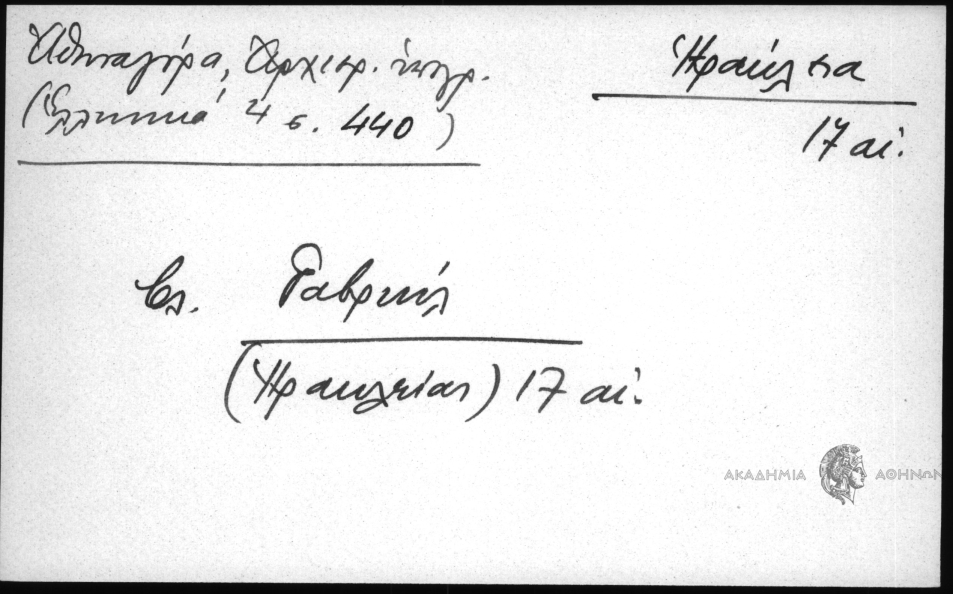 Ἀθηναγόρα, Ἀρχιερ. ὑπογρ.
(Ἑλληνικά 4 σ. 440)
Ἡράκλεια
17 αἰ.
βλ. Γαβριήλ
(Ἡρακλείας) 17 αἰ.
ΑΚΑΔΗΜΙΑ ΑΘΗΝΩΝ